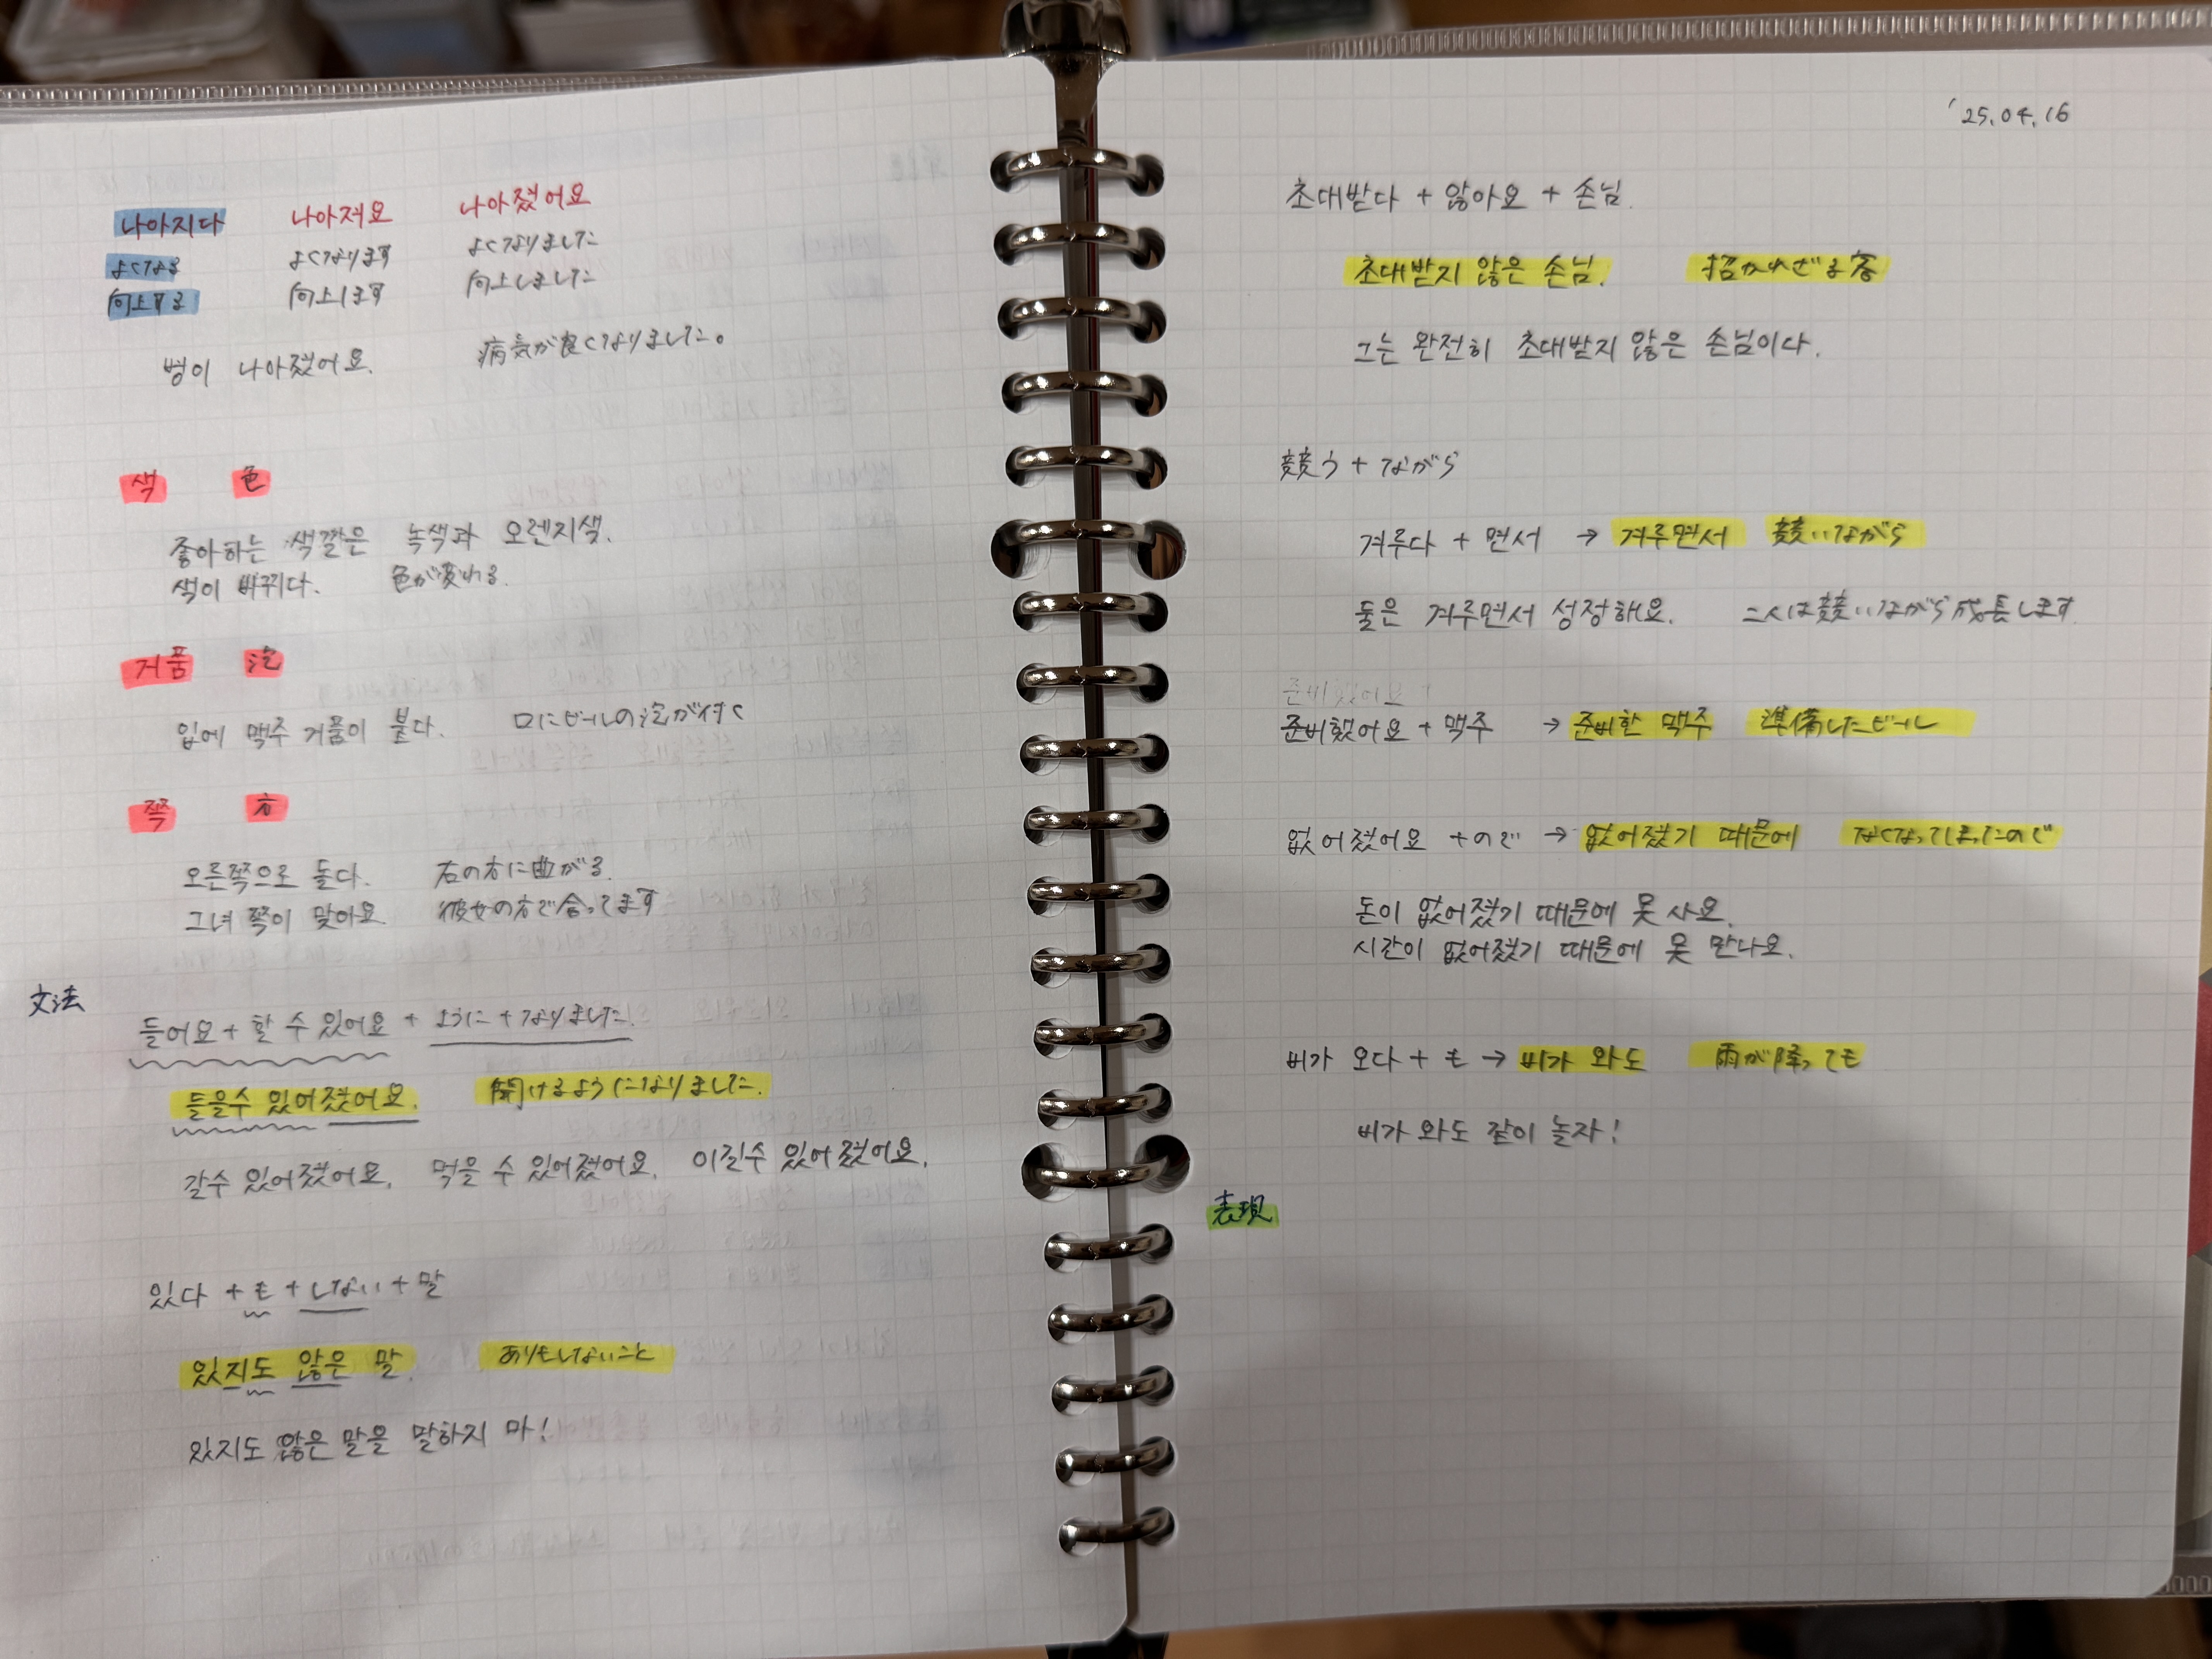 나아지다 나아져요 나아졌어요
よくなる よくなります よくなりました
向上する 向上します 向上しました
병이 나아졌어요. 病気が良くなりました。
색 色
좋아하는 색깔은 녹색과 오렌지색.
색이 바뀌다. 色が変わる.
거품 泡
입에 맥주 거품이 붙다. 口にビールの泡が付く
쪽 方
오른쪽으로 돌다. 右の方に曲がる.
그녀 쪽이 맞아요. 彼女の方で合ってます
文法
들어요 + 할 수 있어요 + ように + なりました.
들을수 있어졌어요. 聞けるようになりました.
갈수 있어졌어요. 먹을 수 있어졌어요. 이길수 있어졌어요.
있다 + も + しない + 말
있지도 않은 말. ありもしないこと
있지도 않은 말을 말하지 마!
'25.04.16
초대받다 + 않아요 + 손님.
초대받지 않은 손님. 招かれざる客
그는 완전히 초대받지 않은 손님이다.
競う + ながら
겨루다 + 면서 → 겨루면서 競いながら
둘은 겨루면서 성정해요. 二人は競いながら成長します.
준비했어요 +
준비했어요 + 맥주 → 준비한 맥주 準備したビール
없어졌어요 + ので → 없어졌기 때문에 なくなってしまったので
돈이 없어졌기 때문에 못 사요.
시간이 없어졌기 때문에 못 만나요.
비가 오다 + も → 비가 와도 雨が降っても
비가 와도 같이 놀자!
表現